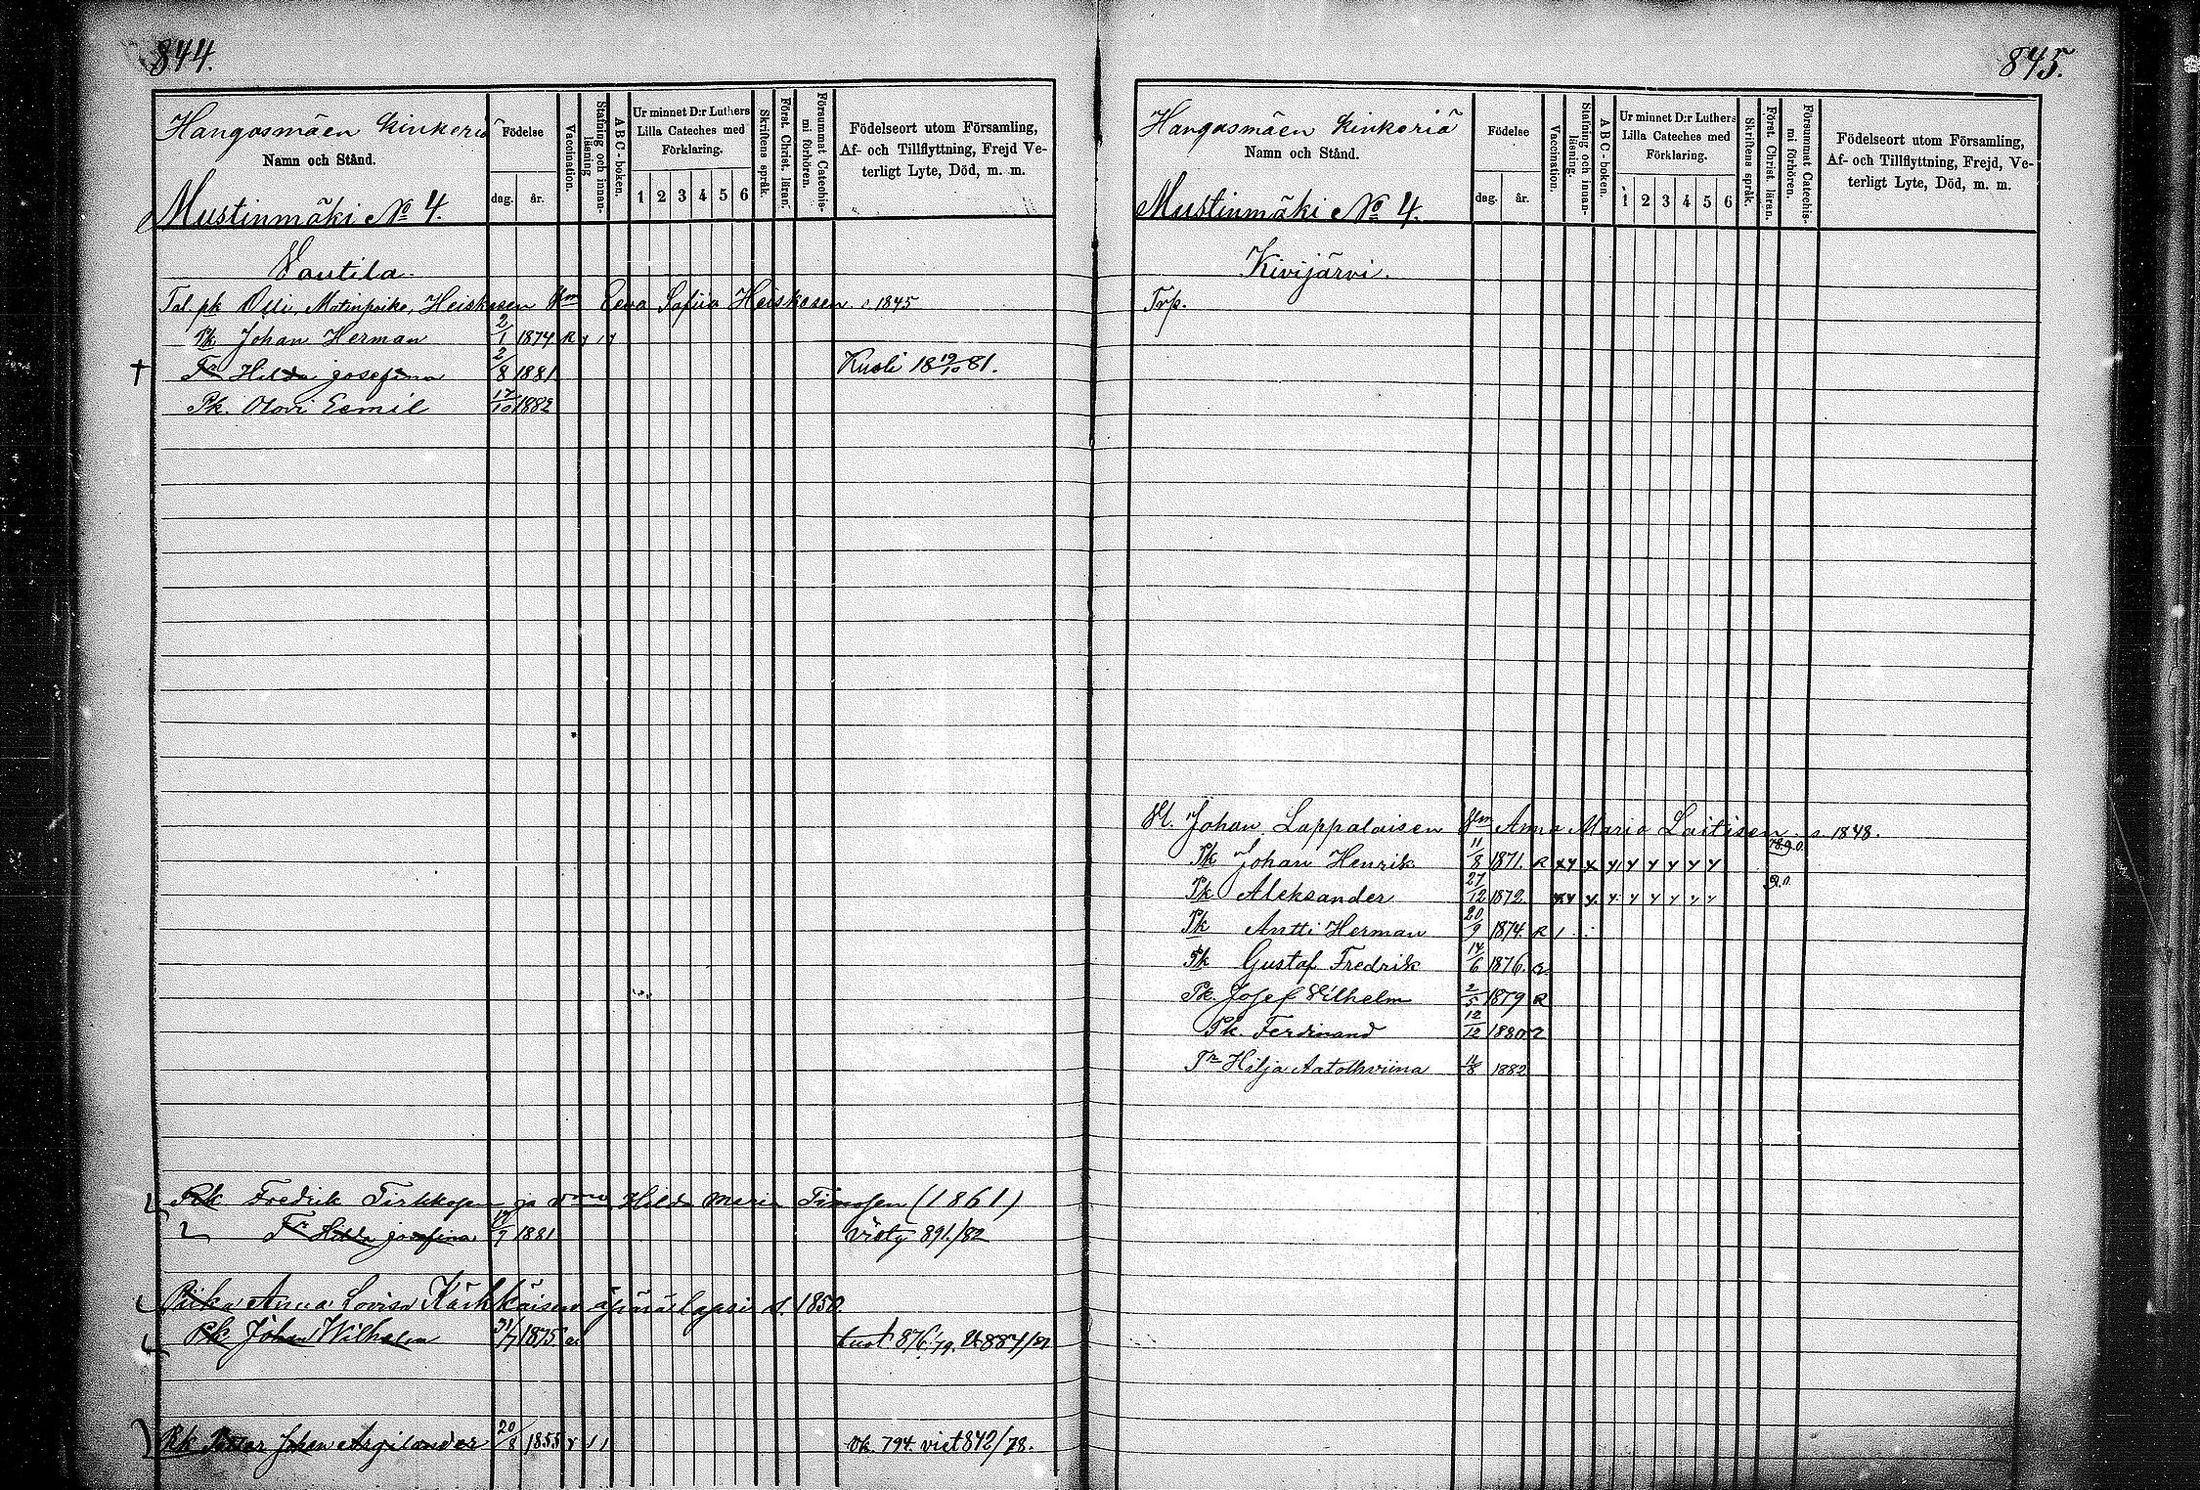 844.
Hangasmäen kinkeriä
Namn och Stånd.
Mustinmäki No 4.
Födelse
dag. år.
Vaccination.
Stafning och innan-läsning
A B C-boken.
Ur minnet D:r Luthers
Lilla Cateches med
Förklaring.
1 2 3 4 5 6
Skriftens språk.
Först. Christ. läran.
Försummat Catechis-mi förhören.
Födelseort utom Församling,
Af- och Tillflyttning, Frejd Ve-
terligt Lyte, Död, m. m.
Vautila.
Tal. pk Olli Matinpoika Heiskasen Vm Eeva Sofiia Heiskasen s 1845
Pk Johan Herman 2/1 1874 R
† Tr Hilda Josefina 2/8 1881 Kuoli 18 19/10 81.
Pk. Olovi Eemil 17/10 1882
Rk Fredrik Tirkkosen ja Vmo Hilda Maria Timosen (1861)
Tr Hilda Josefina /9 1881 Viety 891./82
Piika Anna Lovisa Kärkkäisen äpärälapsi s. 1850.
Pk Johan Wilhelm 31/7 1875. tuot 876/79. 887/81
Rk Johan Argilander 20/8 1855 ok. 794. viet 842/78.
845.
Hangasmäen kinkeriä
Namn och Stånd.
Mustinmäki No 4.
Födelse
dag. år.
Vaccination.
Stafning och innan-läsning.
A B C-boken.
Ur minnet D:r Luthers
Lilla Cateches med
Förklaring.
1 2 3 4 5 6
Skriftens språk.
Först. Christ. läran.
Försummat Catechis-mi förhören.
Födelseort utom Församling,
Af- och Tillflyttning, Frejd, Ve-
terligt Lyte, Död, m. m.
Kivijärvi.
Trp.
Johan Lappalaisen Vm Anna Maria Laitisen s 1848.
Pk Johan Henrik 11/8 1871. R
Pk Aleksander 27/12 1872
Pk Antti Herman 20/9 1874. R
Pk Gustaf Fredrik 14/6 1876. R
Pk. Josef Vilhelm 2/5 1879 R
Pk. Ferdinand 12/12 1880 R
Tr Hilja Aatolhviina 11/8 1882